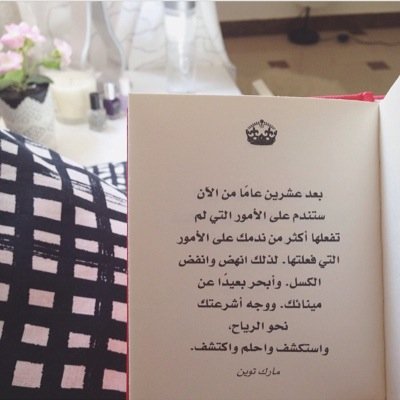 بعد عشرين عامًا من الآن
ستندم على الأمور التي لم
تفعلها أكثر من ندمك على الأمور
التي فعلتها. لذلك انهض وانفض
الكسل. وأبحر بعيدًا عن
مينائك. ووجه أشرعتك
نحو الرياح،
واستكشف واحلم واكتشف.
مارك توين